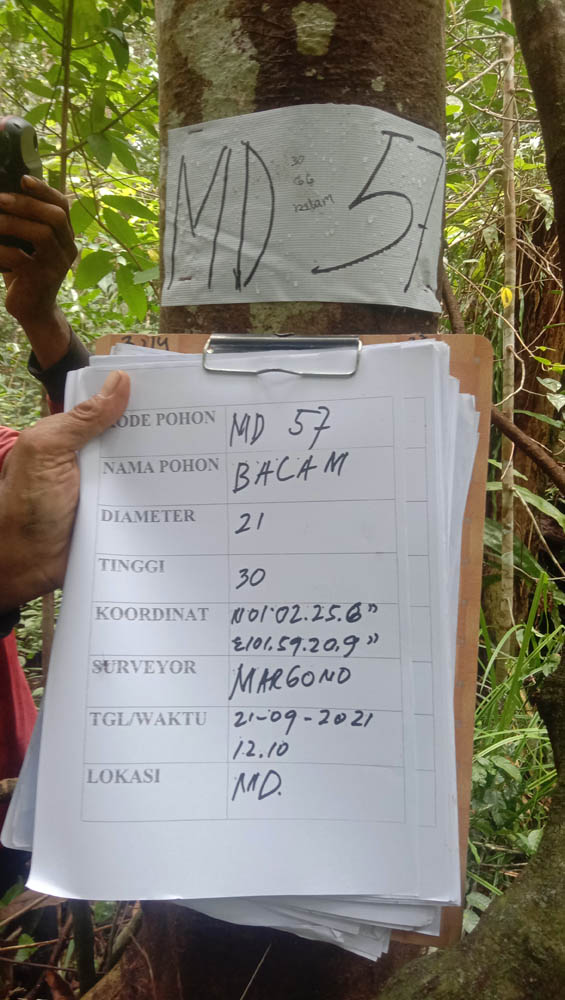 MD 57
30
66
KODE POHON MD 57
NAMA POHON BACAM
DIAMETER 21
TINGGI 30
KOORDINAT N01.02.25.6"
E101.59.20.9"
SURVEYOR MARGONO
TGL/WAKTU 21-09-2021
12.10
LOKASI MD.